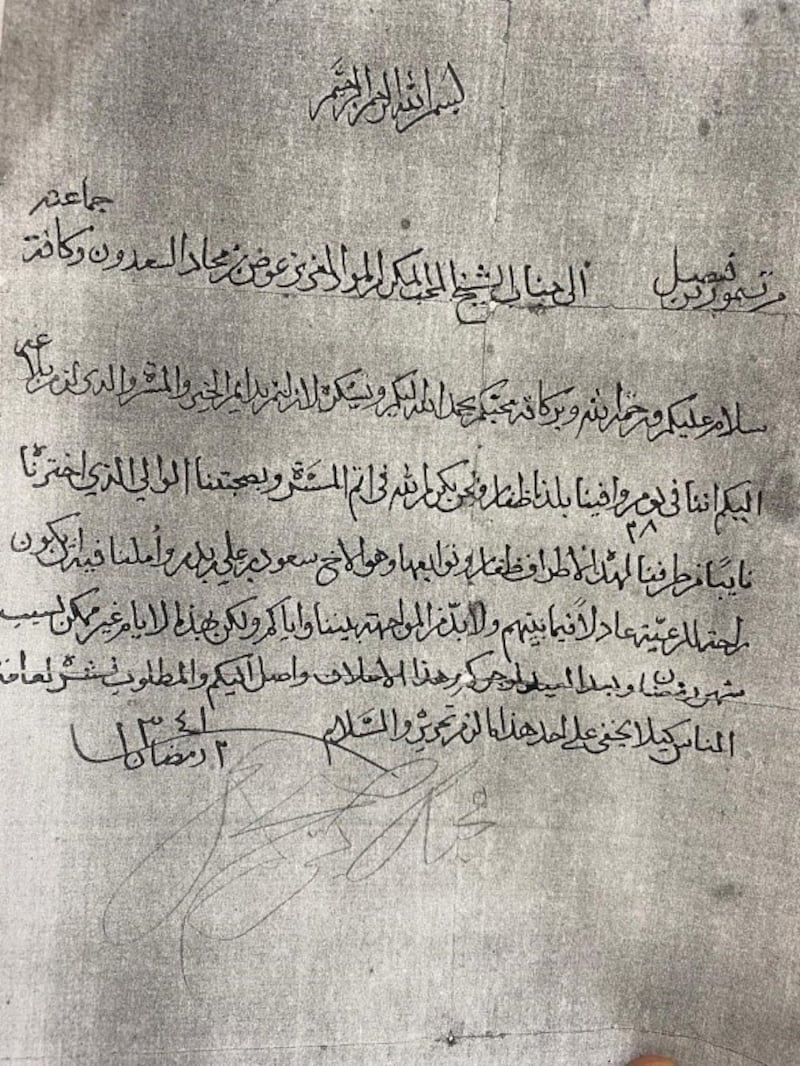 بسم الله الرحمن الرحيم
من تيمور بن فيصل الى جناب الشيخ المحب المكرم الموالمغيز عوض بن محاد السعدون وكافة جماعته
سلام عليكم ورحمة الله وبركاته محبكم بحمد الله اليكم ونشكره لازلتم بدايم الخير والمسره والذى لزم بلاغه
اليكم اننا فى يوم ٢٨ وافينا بلدنا ظفار ونحن بكرم الله فى اتم المسرة وبصحبتنا الوالي الذي اخترنا
نايبًا من طرفنا لهذا الاطراف ظفار وتوابعها وهو الاخ سعود بن علي بن بدر وأملنا فيه ان يكون
راحة للرعيّة عادلاً فيما بينهم ولا بدّ من المواجهة بيننا واياكم ولكن بهذا الايام غير ممكن بسبب
شهر رمضان وبعد العيد هذا الاعلاف واصل اليكم والمطلوب نشره لكافة
الناس كيلا يخفى على احد هذا ما لزم تحريره والسلام
٢ رمضان ١٣٤١